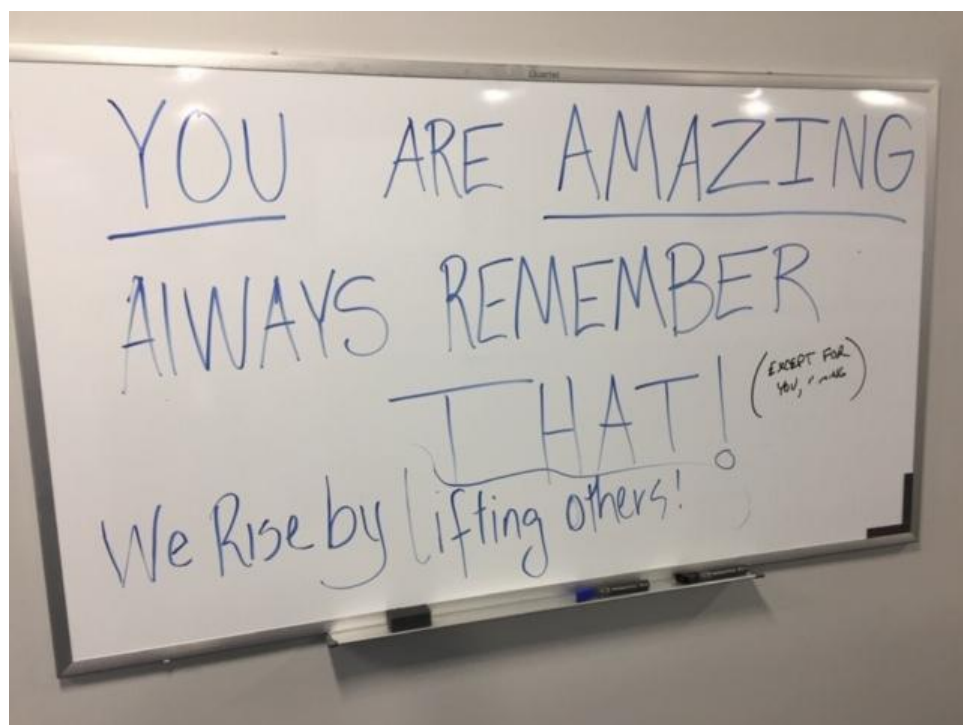 Quartet
YOU ARE AMAZING
AlWAYS REMEMBER
THAT!
(EXCEPT FOR
YOU,
We Rise by lifting others!